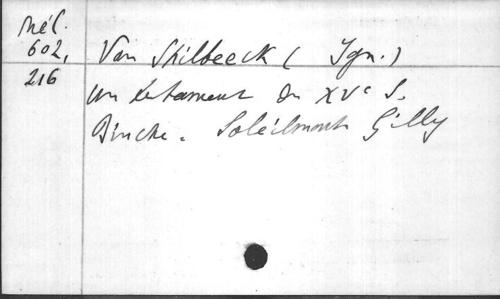 Mél.
602,
216
Van Spilbeeck ( Ign.)
un testament du XVe S.
Binche. Soleilmont Gilly